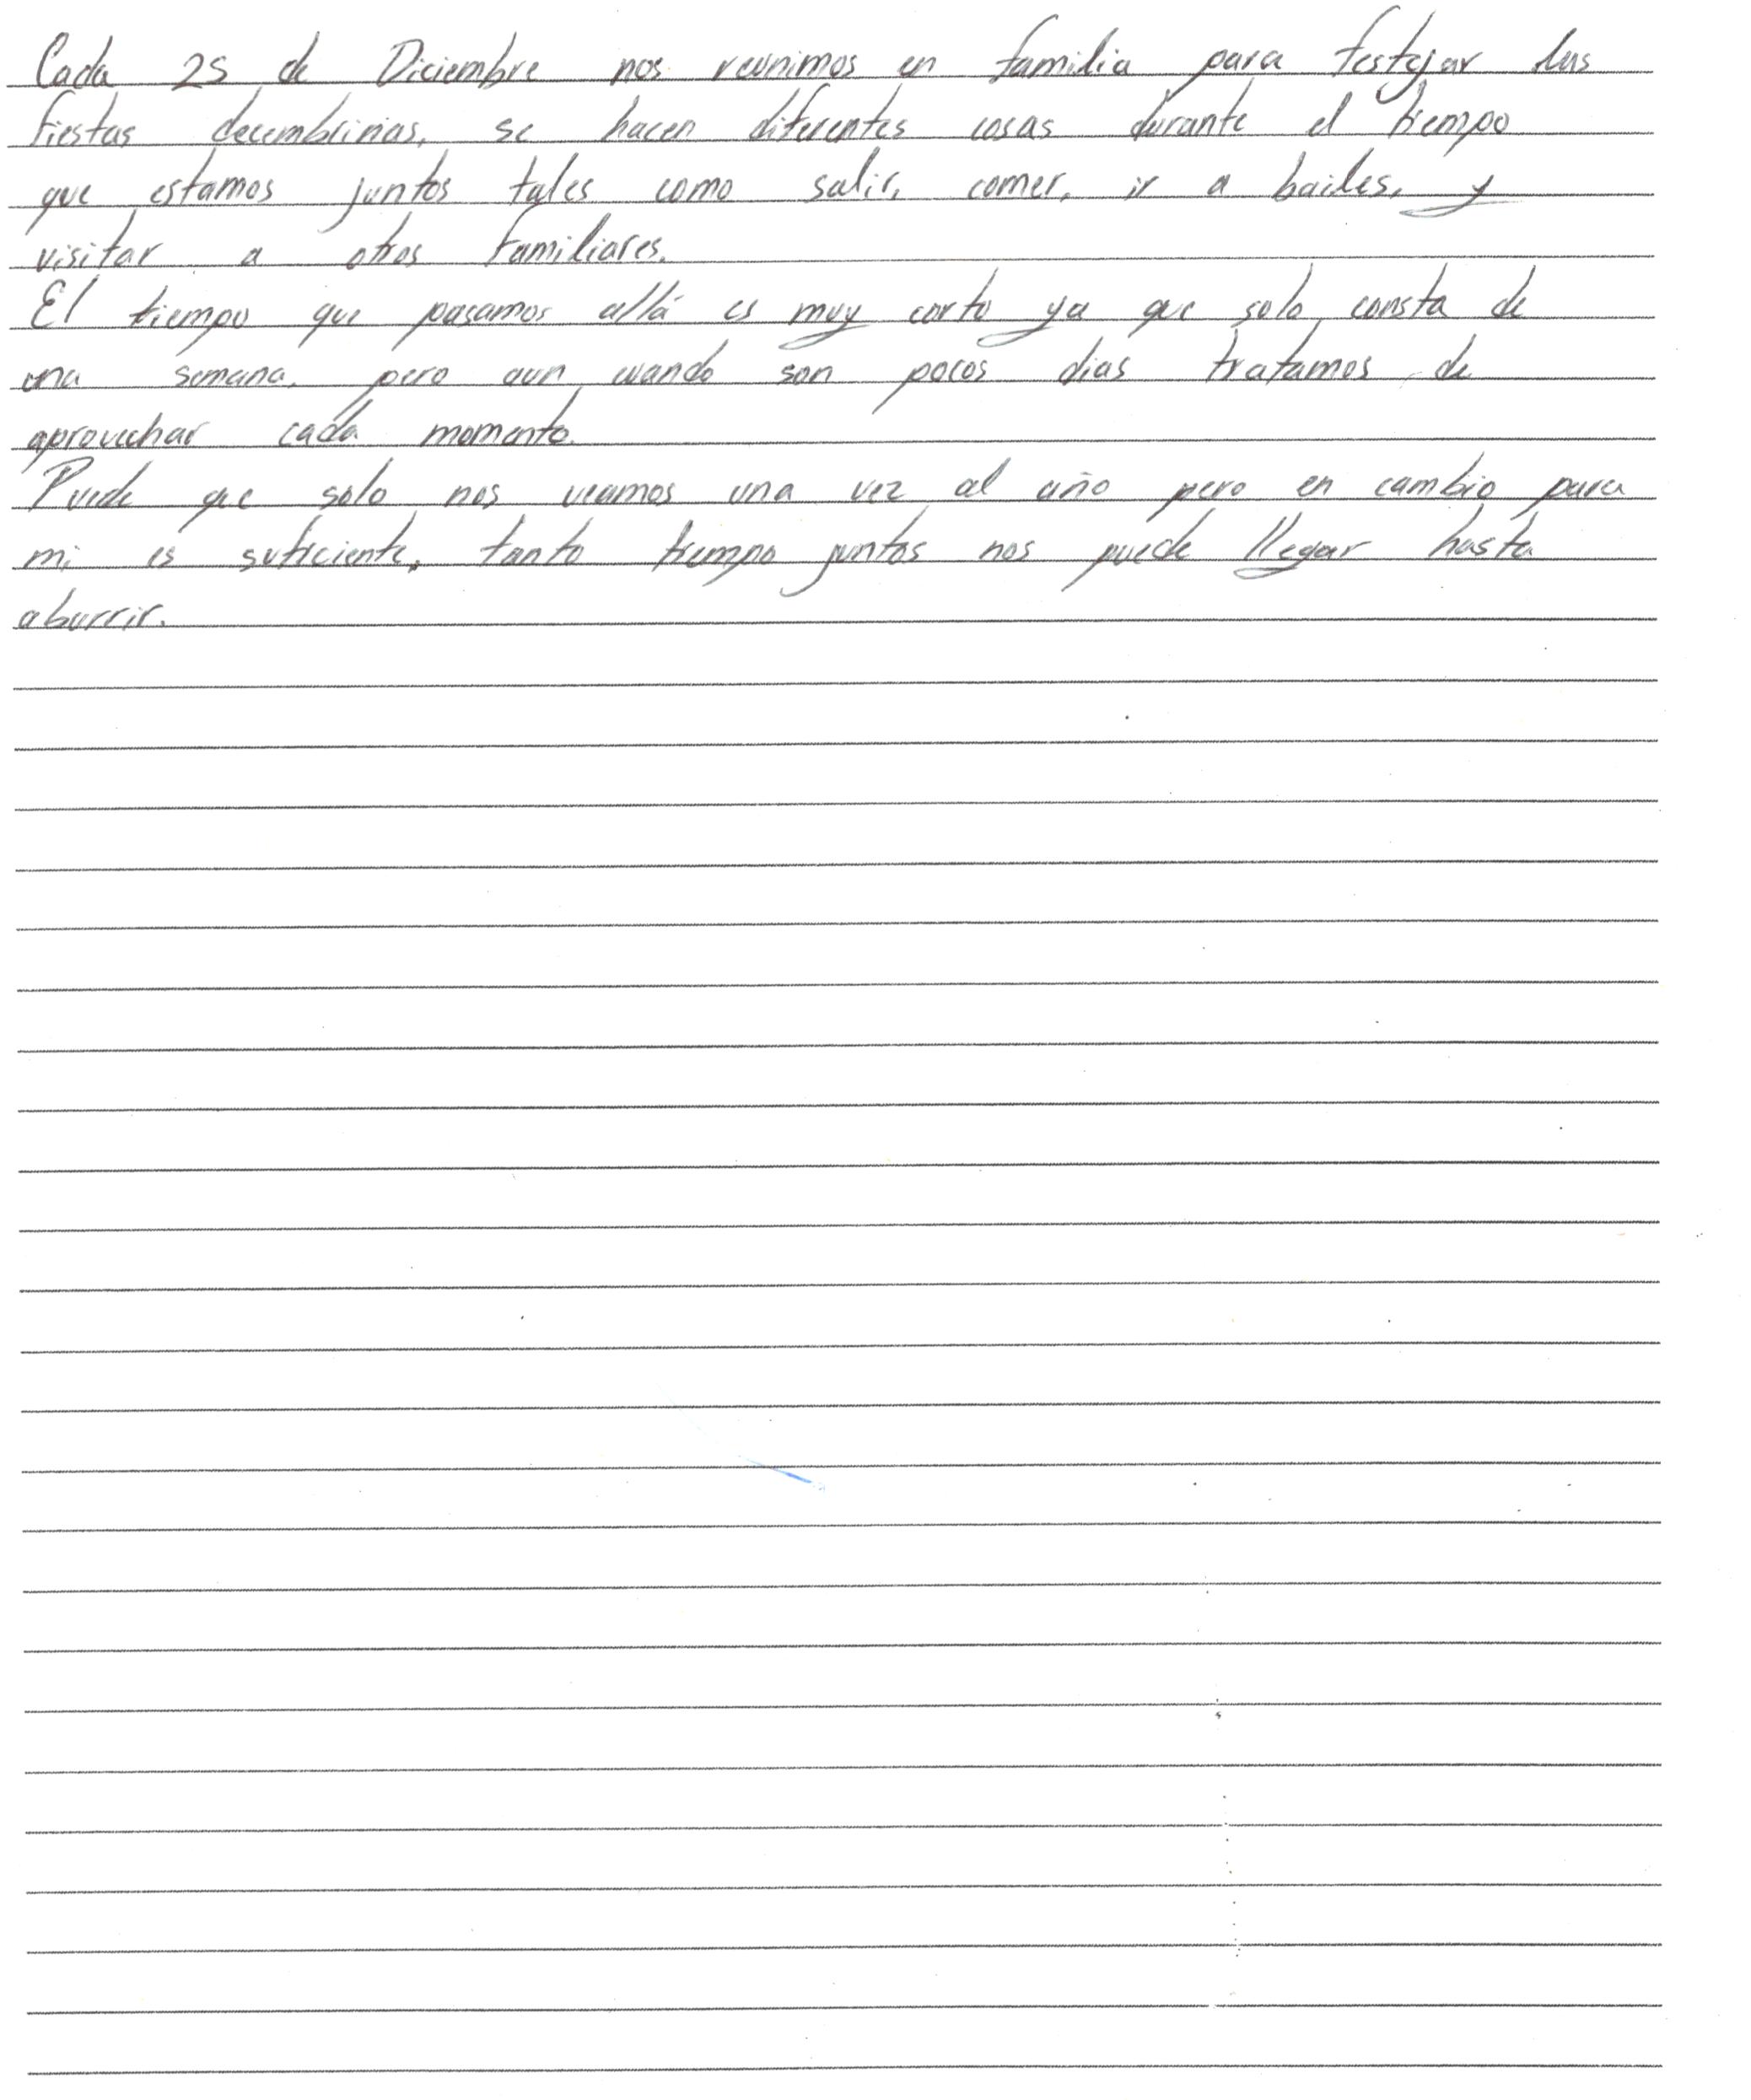 Cada 25 de Diciembre nos reunimos en familia para festejar las
fiestas decembrinas, se hacen diferentes cosas durante el tiempo
que estamos juntos tales como salir, comer, ir a bailes, y
visitar a otros familiares.
El tiempo que pasamos allá es muy corto ya que solo consta de
una semana, pero aun cuando son pocos dias tratamos de
aprovechar cada momento.
Puede que solo nos veamos una vez al año pero en cambio para
mi es suficiente, tanto tiempo juntos nos puede llegar hasta
aburrir.